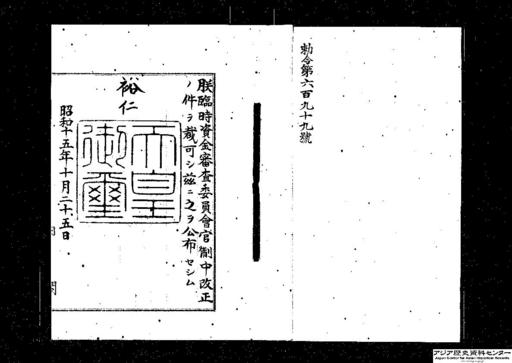 勅令第六百九十九號
朕臨時資金審査委員會官制中改正
ノ件ヲ裁可シ茲ニ之ヲ公布セシム
裕仁
天皇
御璽
昭和十五年十月二十五日
内閣
アジア歴史資料センター
Japan Center for Asian Historical Records